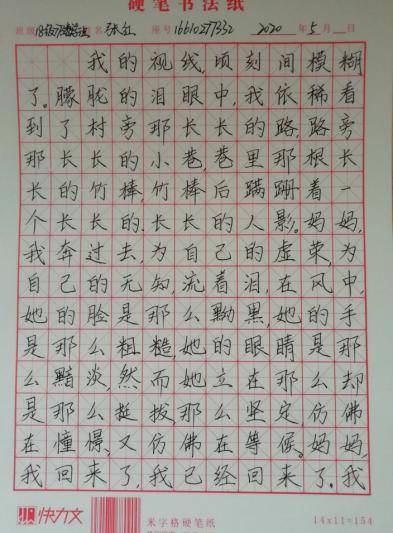 硬笔书法纸
班级 姓名 张红 座号 16610277332 2020年5月 日
我的视线,顷刻间模糊
了。朦胧的泪眼中,我依稀看
到了村旁那长长的路,路旁
那长长的小巷,巷里那根长
长的竹棒,竹棒后蹒跚着一
个长长的.长长的人影。妈妈,
我奔过去,为自己的虚荣,为
自己的无知,流着泪,在风中,
她的脸是那么黝黑,她的手
是那么粗糙,她的眼睛是那
么黯淡,然而她立在那么却
是那么挺拔,那么坚定,仿佛
在憧憬,又仿佛在等候。妈妈,
我回来了,我已经回来了。我
快力文 米字格硬笔纸 14x11=154